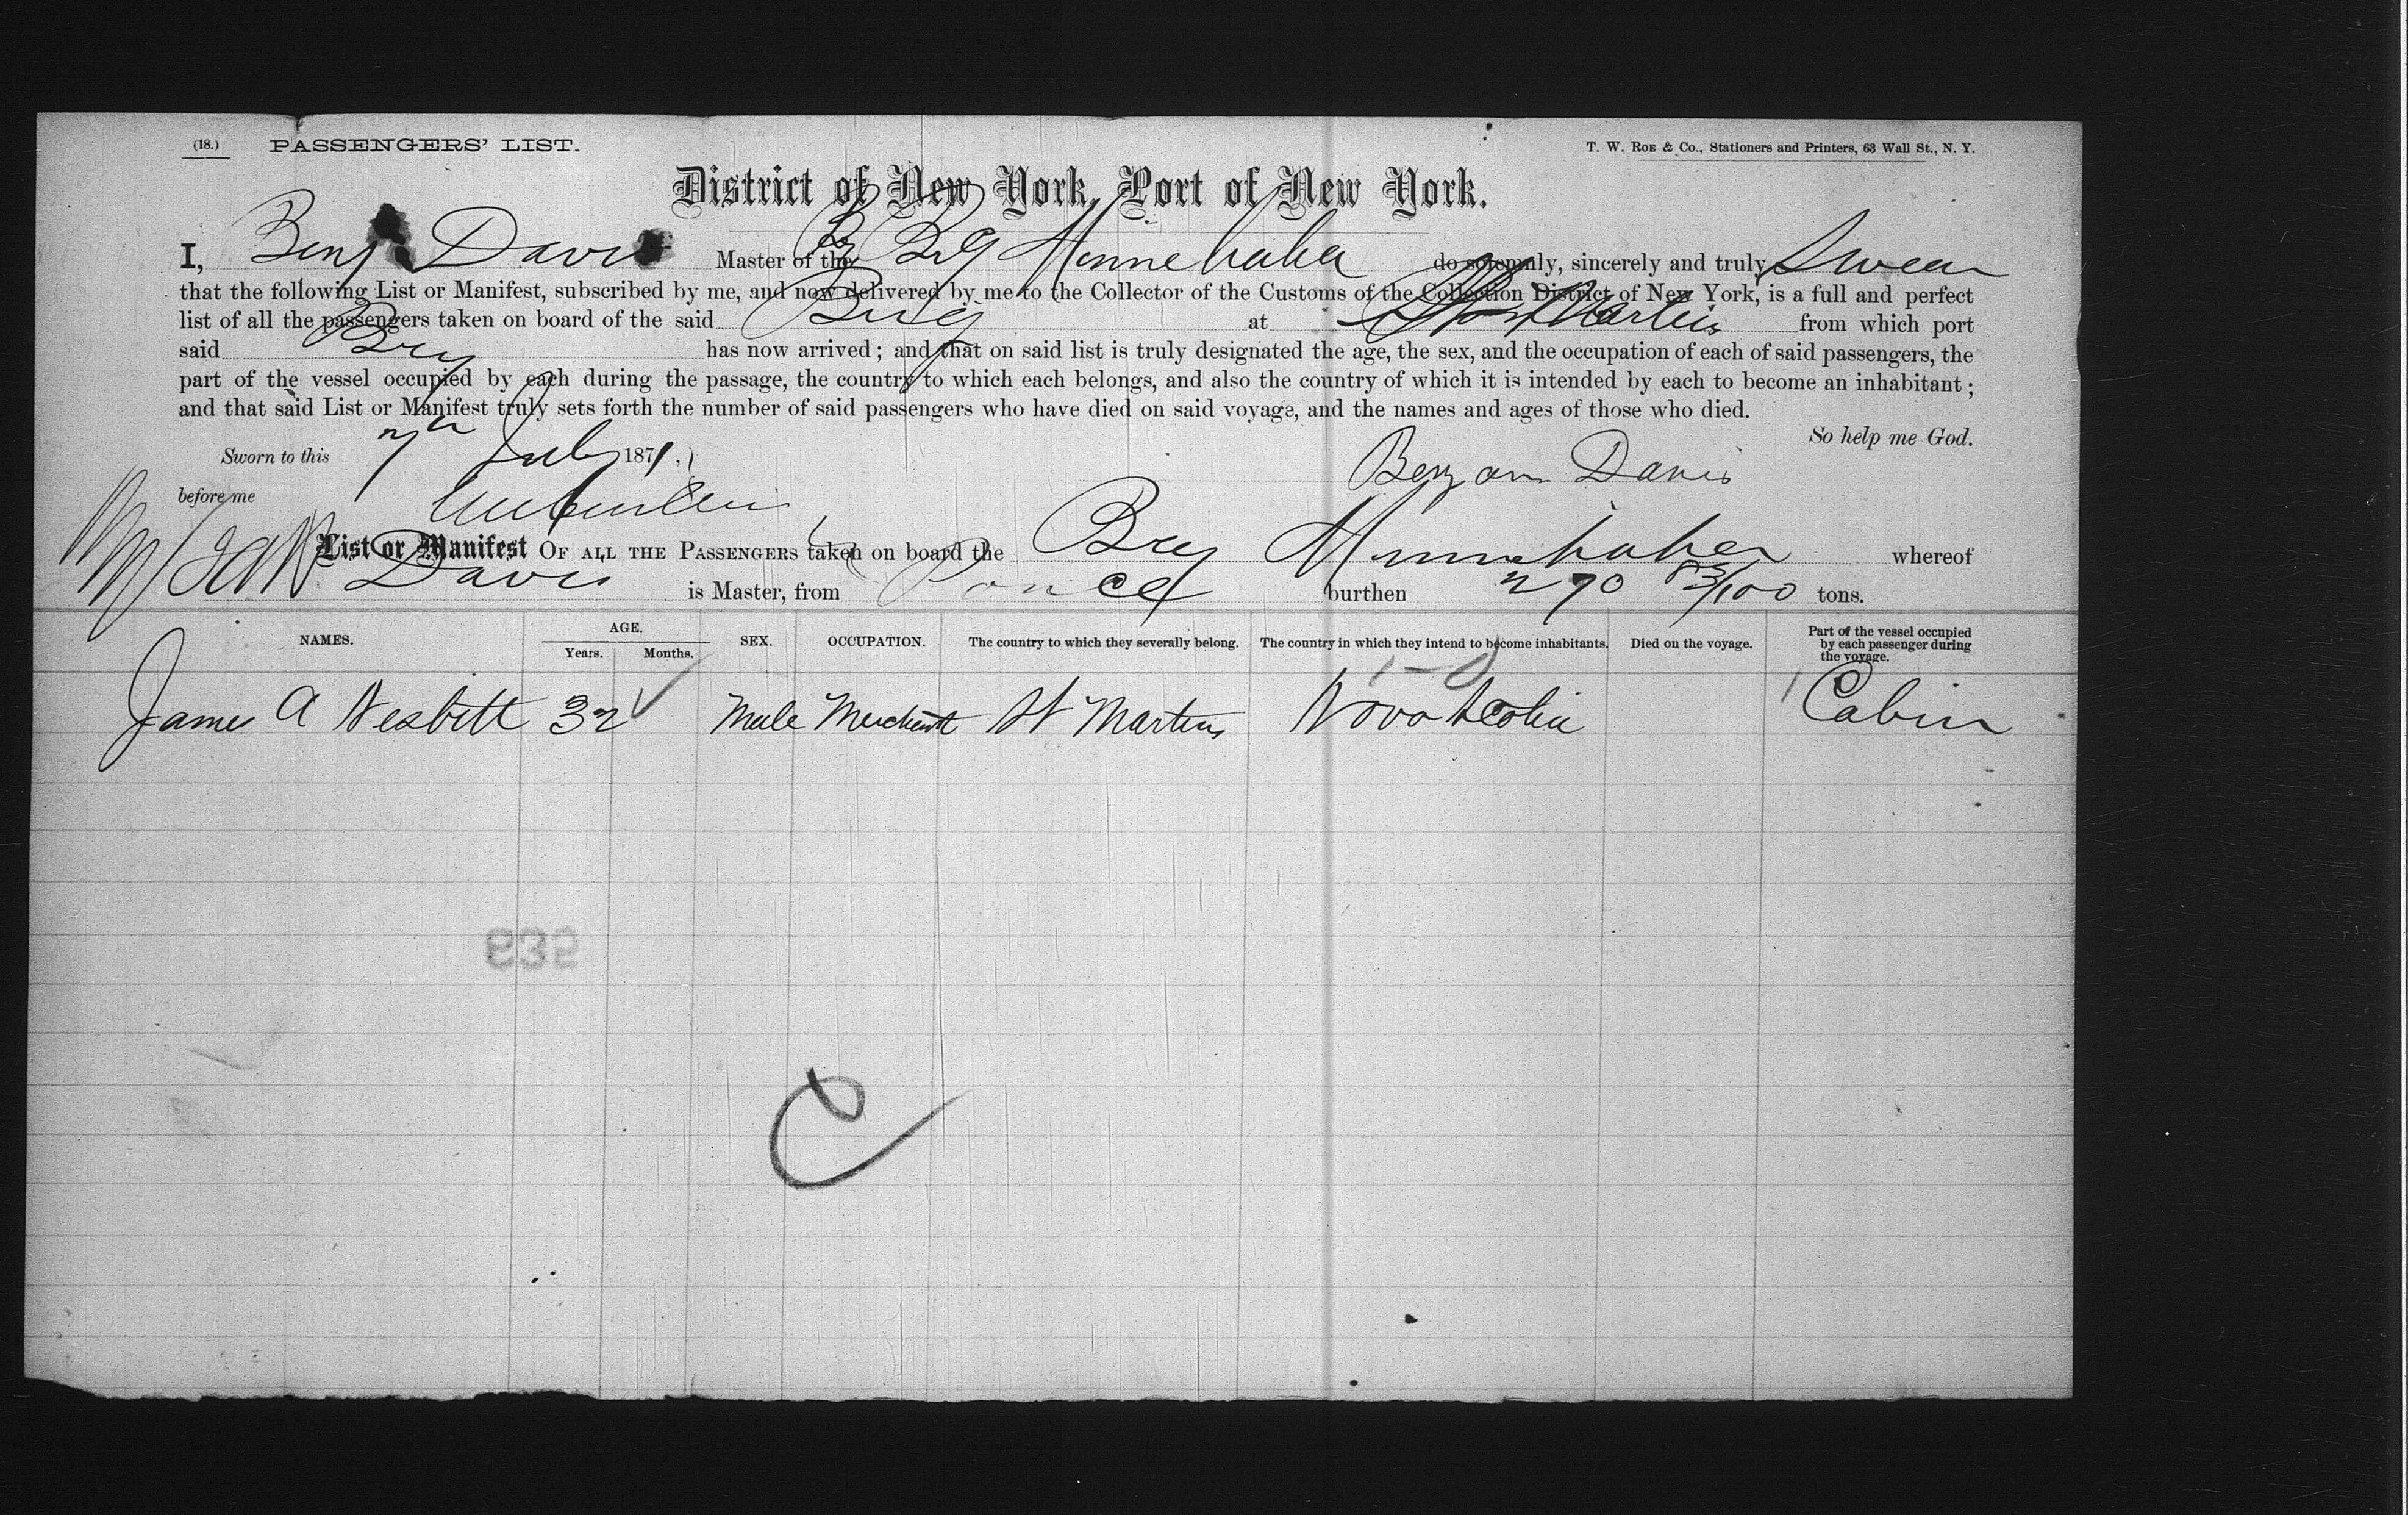 (18.) PASSENGERS' LIST. T. W. ROE & Co., Stationers and Printers, 63 Wall St., N. Y.
District of New York, Port of New York.
I, Benj Davis Master of the Br Brig Minnehaha do solemnly, sincerely and truly Swear
that the following List or Manifest, subscribed by me, and now delivered by me to the Collector of the Customs of the Collection District of New York, is a full and perfect
list of all the passengers taken on board of the said Brig at St Martins from which port
said Brig has now arrived; and that on said list is truly designated the age, the sex, and the occupation of each of said passengers, the
part of the vessel occupied by each during the passage, the country to which each belongs, and also the country of which it is intended by each to become an inhabitant;
and that said List or Manifest truly sets forth the number of said passengers who have died on said voyage, and the names and ages of those who died.
So help me God.
Sworn to this 7th July 1871,
before me Davis
List or Manifest OF ALL THE PASSENGERS taken on board the Brig Minnehaha whereof
Davis is Master, from Ponce burthen 270 83/100 tons.
NAMES. AGE. Years. Months. SEX. OCCUPATION. The country to which they severally belong. The country in which they intend to become inhabitants. Died on the voyage. Part of the vessel occupied by each passenger during the voyage.
James A Nesbitt 32 Male Merchant St Martins Nova Scotia Cabin
C